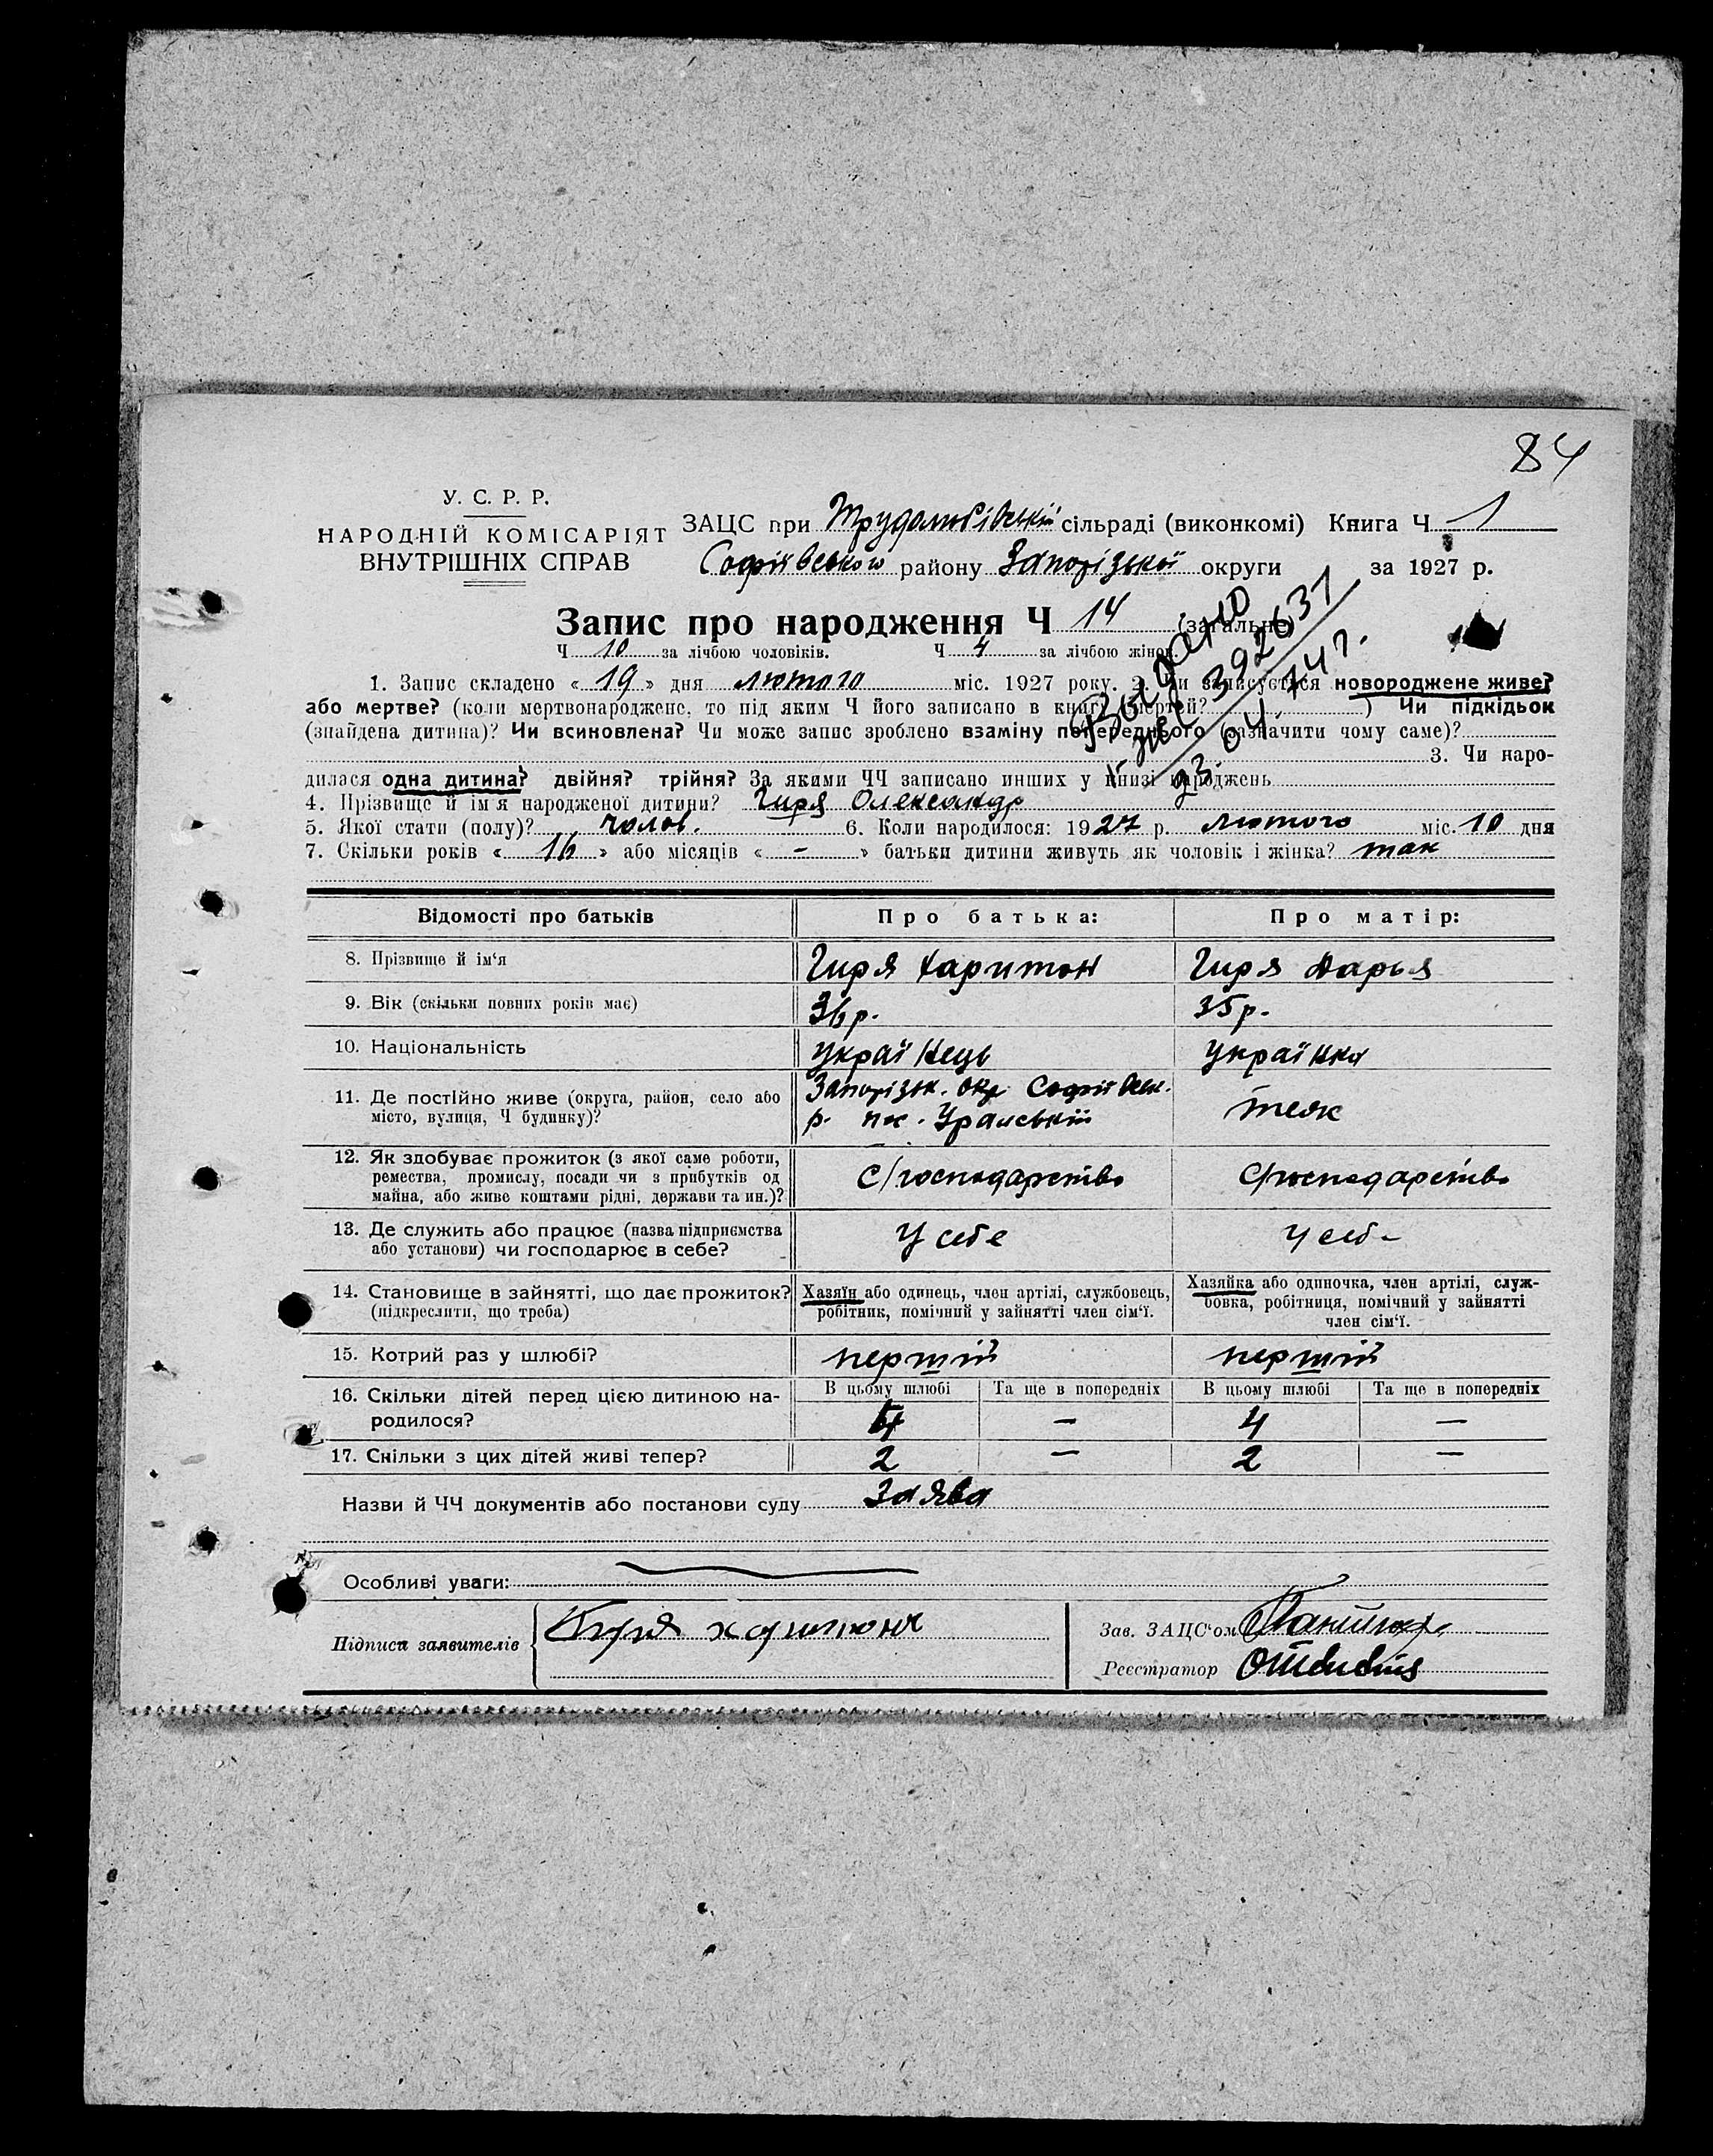 84
У. С. Р. Р.
НАРОДНІЙ КОМІСАРІЯТ
ВНУТРІШНІХ СПРАВ
ЗАЦС при Трудолюбівській сільраді (виконкомі) Книга Ч 1
Софіївського району Запорізької округи за 1927 р.
Запис про народження Ч 14 (загальне)
Ч 10 за лічбою чоловіків. Ч 4 за лічбою жінок.
Выдано
392631
23. 04. 74 г.
1. Запис складено « 19 » дня лютого міс. 1927 року. 2. Чи записується новороджене живе?
або мертве? (коли мертвонароджене, то під яким Ч його записано в книгу смертей? ) Чи підкідьок
(знайдена дитина)? Чи всиновлена? Чи може запис зроблено взаміну попереднього (зазначити чому саме)?
3. Чи наро-
дилася одна дитина? двійня? трійня? За якими ЧЧ записано инших у книзі народжень
4. Прізвище й ім'я народженої дитини? Гиря Олександр
5. Якої стати (полу)? чолов. 6. Коли народилося: 1927 р. лютого міс. 10 дня
7. Скільки років « 16 » або місяців « - » батьки дитини живуть як чоловік і жінка? так
Відомості про батьків Про батька: Про матір:
8. Прізвище й ім'я Гиря Харитон Гиря Дарья
9. Вік (скільки повних років має) 36 р. 35 р.
10. Національність Українець Українка
11. Де постійно живе (округа, район, село або Запорізьк. окр Софіївськ.
місто, вулиця, Ч будинку)? р. пос. Уральській теж
12. Як здобуває прожиток (з якої саме роботи,
ремества, промислу, посади чи з прибутків од С/господарство С/господарство
майна, або живе коштами рідні, держави та ин.)?
13. Де служить або працює (назва підприємства У себе У себе
або установи) чи господарює в себе?
14. Становище в зайнятті, що дає прожиток? Хазяїн або одинець, член артілі, службовець, Хазяйка або одиночка, член артілі, служ-
(підкреслити, що треба) робітник, помічний у зайнятті член сім'ї. бовка, робітниця, помічний у зайнятті
член сім'ї.
15. Котрий раз у шлюбі? першій першій
16. Скільки дітей перед цією дитиною на- В цьому шлюбі Та ще в попередніх В цьому шлюбі Та ще в попередніх
родилося? 4 — 4 —
17. Скільки з цих дітей живі тепер? 2 — 2 —
Назви й ЧЧ документів або постанови суду Заява
Особливі уваги:
Підписи заявителів Гиря харитонъ
Зав. ЗАЦС'ом
Реєстратор